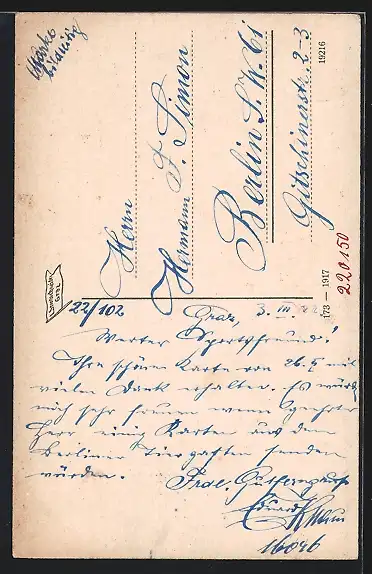 Marke
Herrn
Hermann F. Simon
Berlin S.W. 61
Gitschinerstr. 2-3
19216
173 — 1917
220150
Graz
22/102
Graz, 3. III.
Werter Sportsfreund!
Ihre schöne Karte von 26. mit
vielen Dank erhalten. Es würde
mich sehr freuen wenn geehrter
Herr einig Karten aus dem
Berliner Tiergarten senden
würden.
Eduard
16096